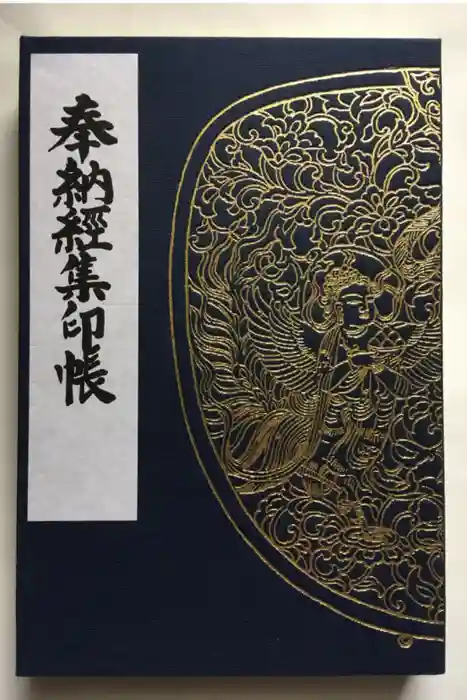 奉納經集印帳